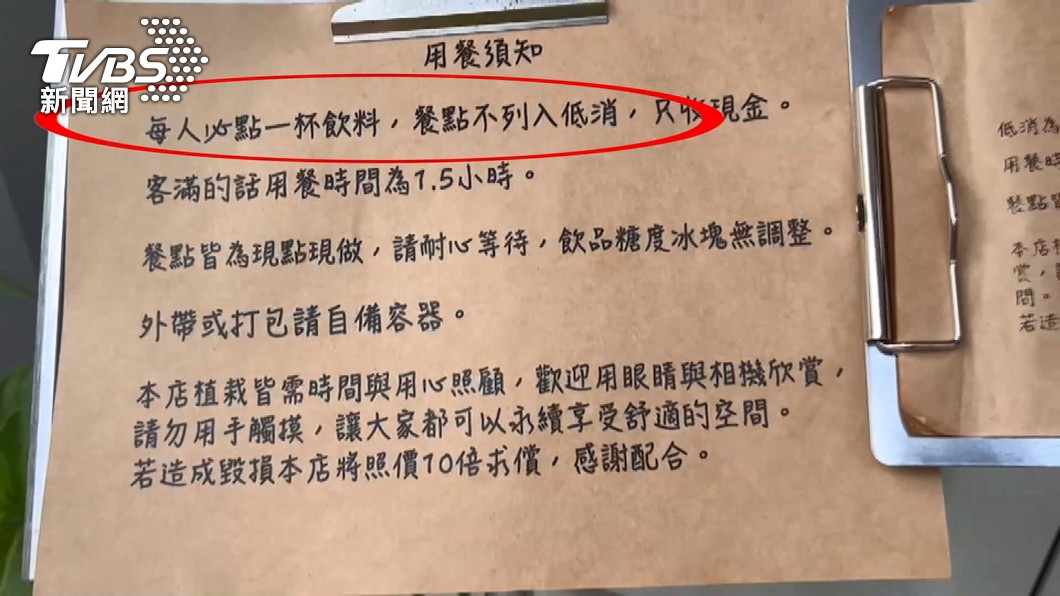 TVBS
新聞網
用餐須知
每人必點一杯飲料，餐點不列入低消，只收現金。
客滿的話用餐時間為1.5小時。
餐點皆為現點現做，請耐心等待，飲品糖度冰塊無調整。
外帶或打包請自備容器。
本店植栽皆需時間與用心照顧，歡迎用眼睛與相機欣賞，
請勿用手觸摸，讓大家都可以永續享受舒適的空間。
若造成毀損本店將照價10倍求償，感謝配合。
低消為
用餐時
餐點皆
本店植
賞，
間。
若造